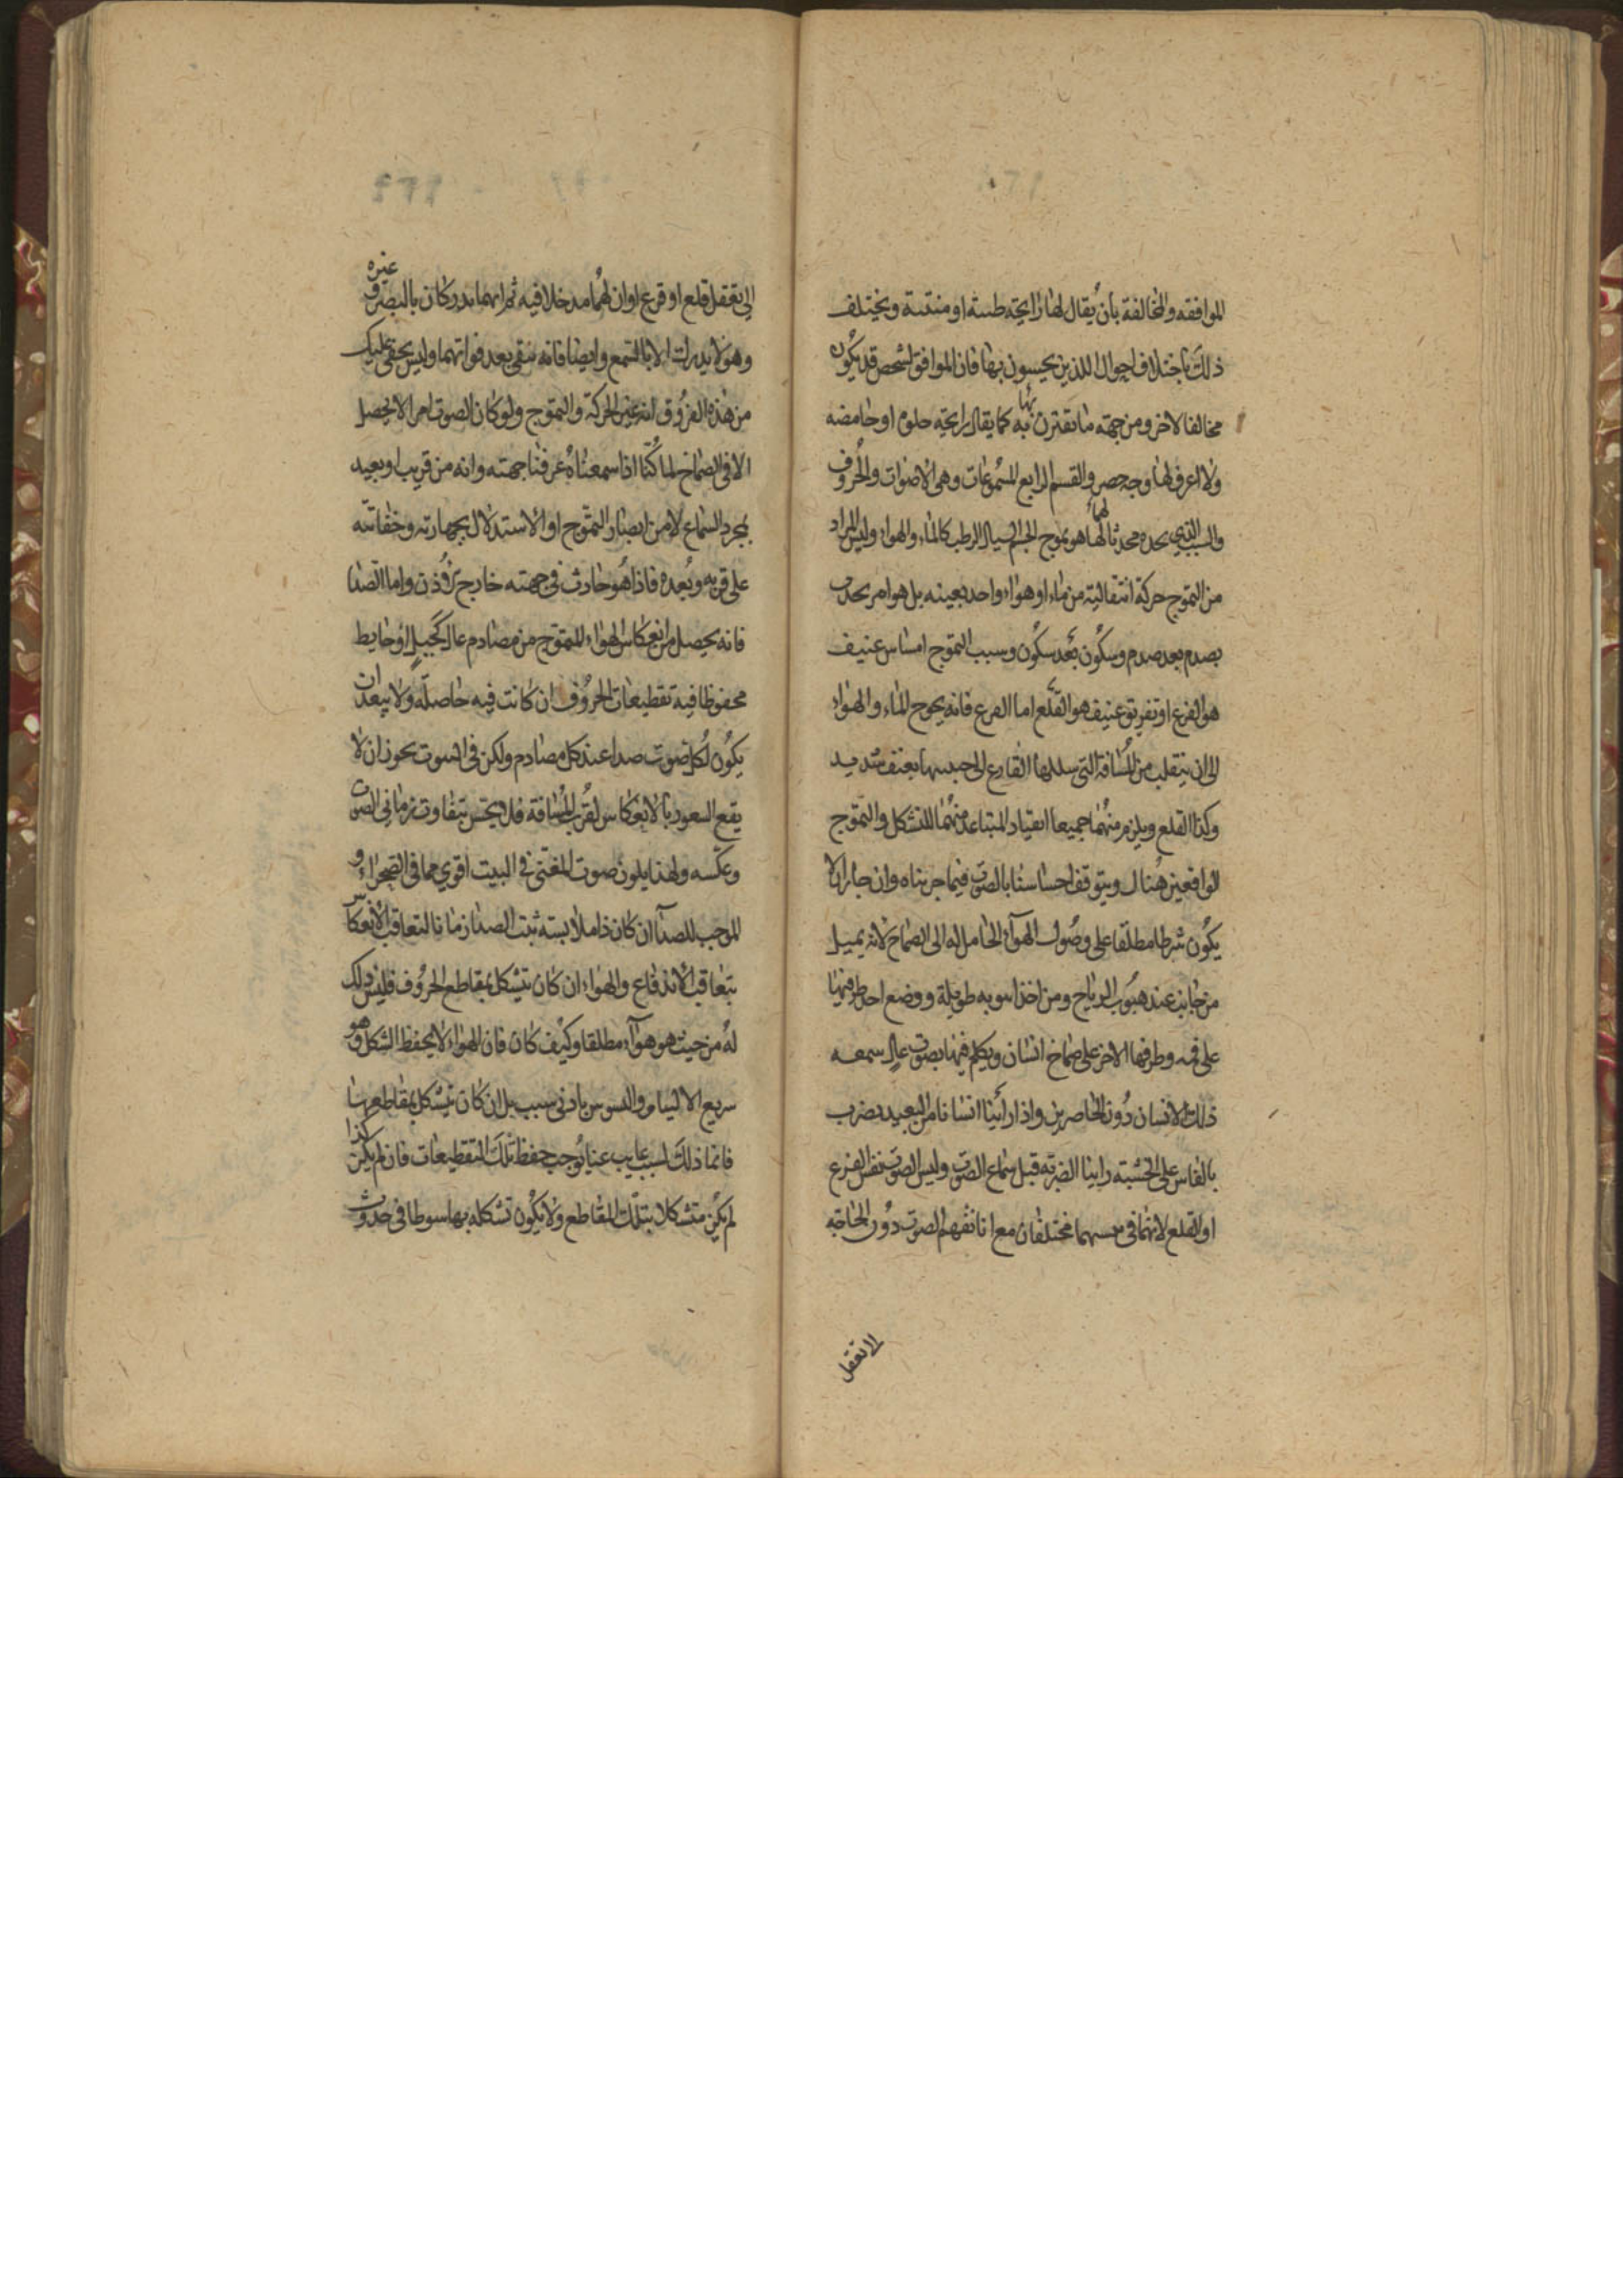 الموافقه والمخالفة بان يقال لها رايحة طيبة او منتنة ويختلف
ذلك باختلاف احوال الذين يحسون بها فان الموافق لشخص قد يكون
مخالفا لاخر ومن جهته ما تقترن به بها كما يقال رايحة حلوه او حامضه
ولا اعرف لها وجه حصر والقسم الرابع المسموعات وهي الاصوات والحروف
والسبب الذي محدثا لها لهما هو تموج الجسم السيال الرطب كالماء والهواء وليس المراد
من التموج حركة انتقالية من ماء او هواء واحد بعينه بل هو امر يحدث
بصدم بعد صدم وسكون بعد سكون وسبب التموج امساس عنيف
هو القرع او تفريق عنيف هو القلع اما القرع فانه يحوج الماء والهواء
الى ان ينقلب من المسافة التي القارع الى بعنف شديد
وكذا القلع ويلزم منهما جميعا انقياد المتباعد منهما للتشكل والتموج
الواقعين هناك ويتوقف احساسنا بالصوت فيما جربناه وان جاز ان لا
يكون شرطا مطلقا على وصول الهواء الحامل له الى الصماخ لانه يميل
من جانب عند هبوب الرياح ومن اخذ انبوبه طويلة ووضع احد طرفيها
على فمه وطرفها الاخر على صماخ انسان وتكلم فيها بصوت عال سمعه
ذلك الانسان دون الحاضرين واذا رأينا انسانا من البعيد يضرب
بالفاس على الخشبته راينا الضربة قبل سماع الصوت وليس الصوت نفس القرع
او القلع لانهما في مختلفان مع انا نفهم الصوت دون الحاجة
الا تعقل
الى تعقل قلع او قرع او ان لهما مدخلا فيه ثم انهما يدركان بالبصر و غيره
وهو لا يدرك الا بالسمع وايضا فانه يبقى بعد فواتهما وليس يخفى عليك
من هذه الفروق انه غير الحركة والتموج ولو كان الصوت امرا لا يحصل
الا في الصماخ لما كنا اذا سمعناه عرفنا جهته وانه من قريب او بعيد
بمجرد السماع لا من ابصار التموج او الاستدلال بجهارته وخفاتته
على قربه وبعده فاذا هو حادث في جهته خارج الاذن واما الصدا
فانه يحصل من انعكاس الهواء المتموج من مصادم عال كجبل او حايط
محفوظا فيه تقطيعات الحروف ان كانت فيه حاصلة ولا يبعد ان
يكون لكل صوت صداء عند كل مصادم ولكن في البيوت يجوز ان لا
يقع الشعور بالانعكاس لقرب المسافة فلا يحس بتفاوت زماني الصوت
وعكسه ولهذا يكون صوت المغني في البيت اقوي مما في الصحراء و
الموجب للصدا ان كان ذا ملابسته ثبت الصدا زمانا لتعاقب الانعكاس
بتعاقب الاندفاع والهواء ان كان يتشكل بمقاطع الحروف فليس ذلك
له من حيث هو هواء مطلقا وكيف كان فان الهواء لا يحفظ الشكل وهو
سريع الالتيام والتشوش بادنى سبب بل ان كان يتشكل بمقاطعها
فانما ذلك لسبب غايب عنا يوجب حفظ تلك التقطيعات فان لم يكن كذا
لم يكن متشكلا بتلك المقاطع ولا يكون تشكله بها في حدوث